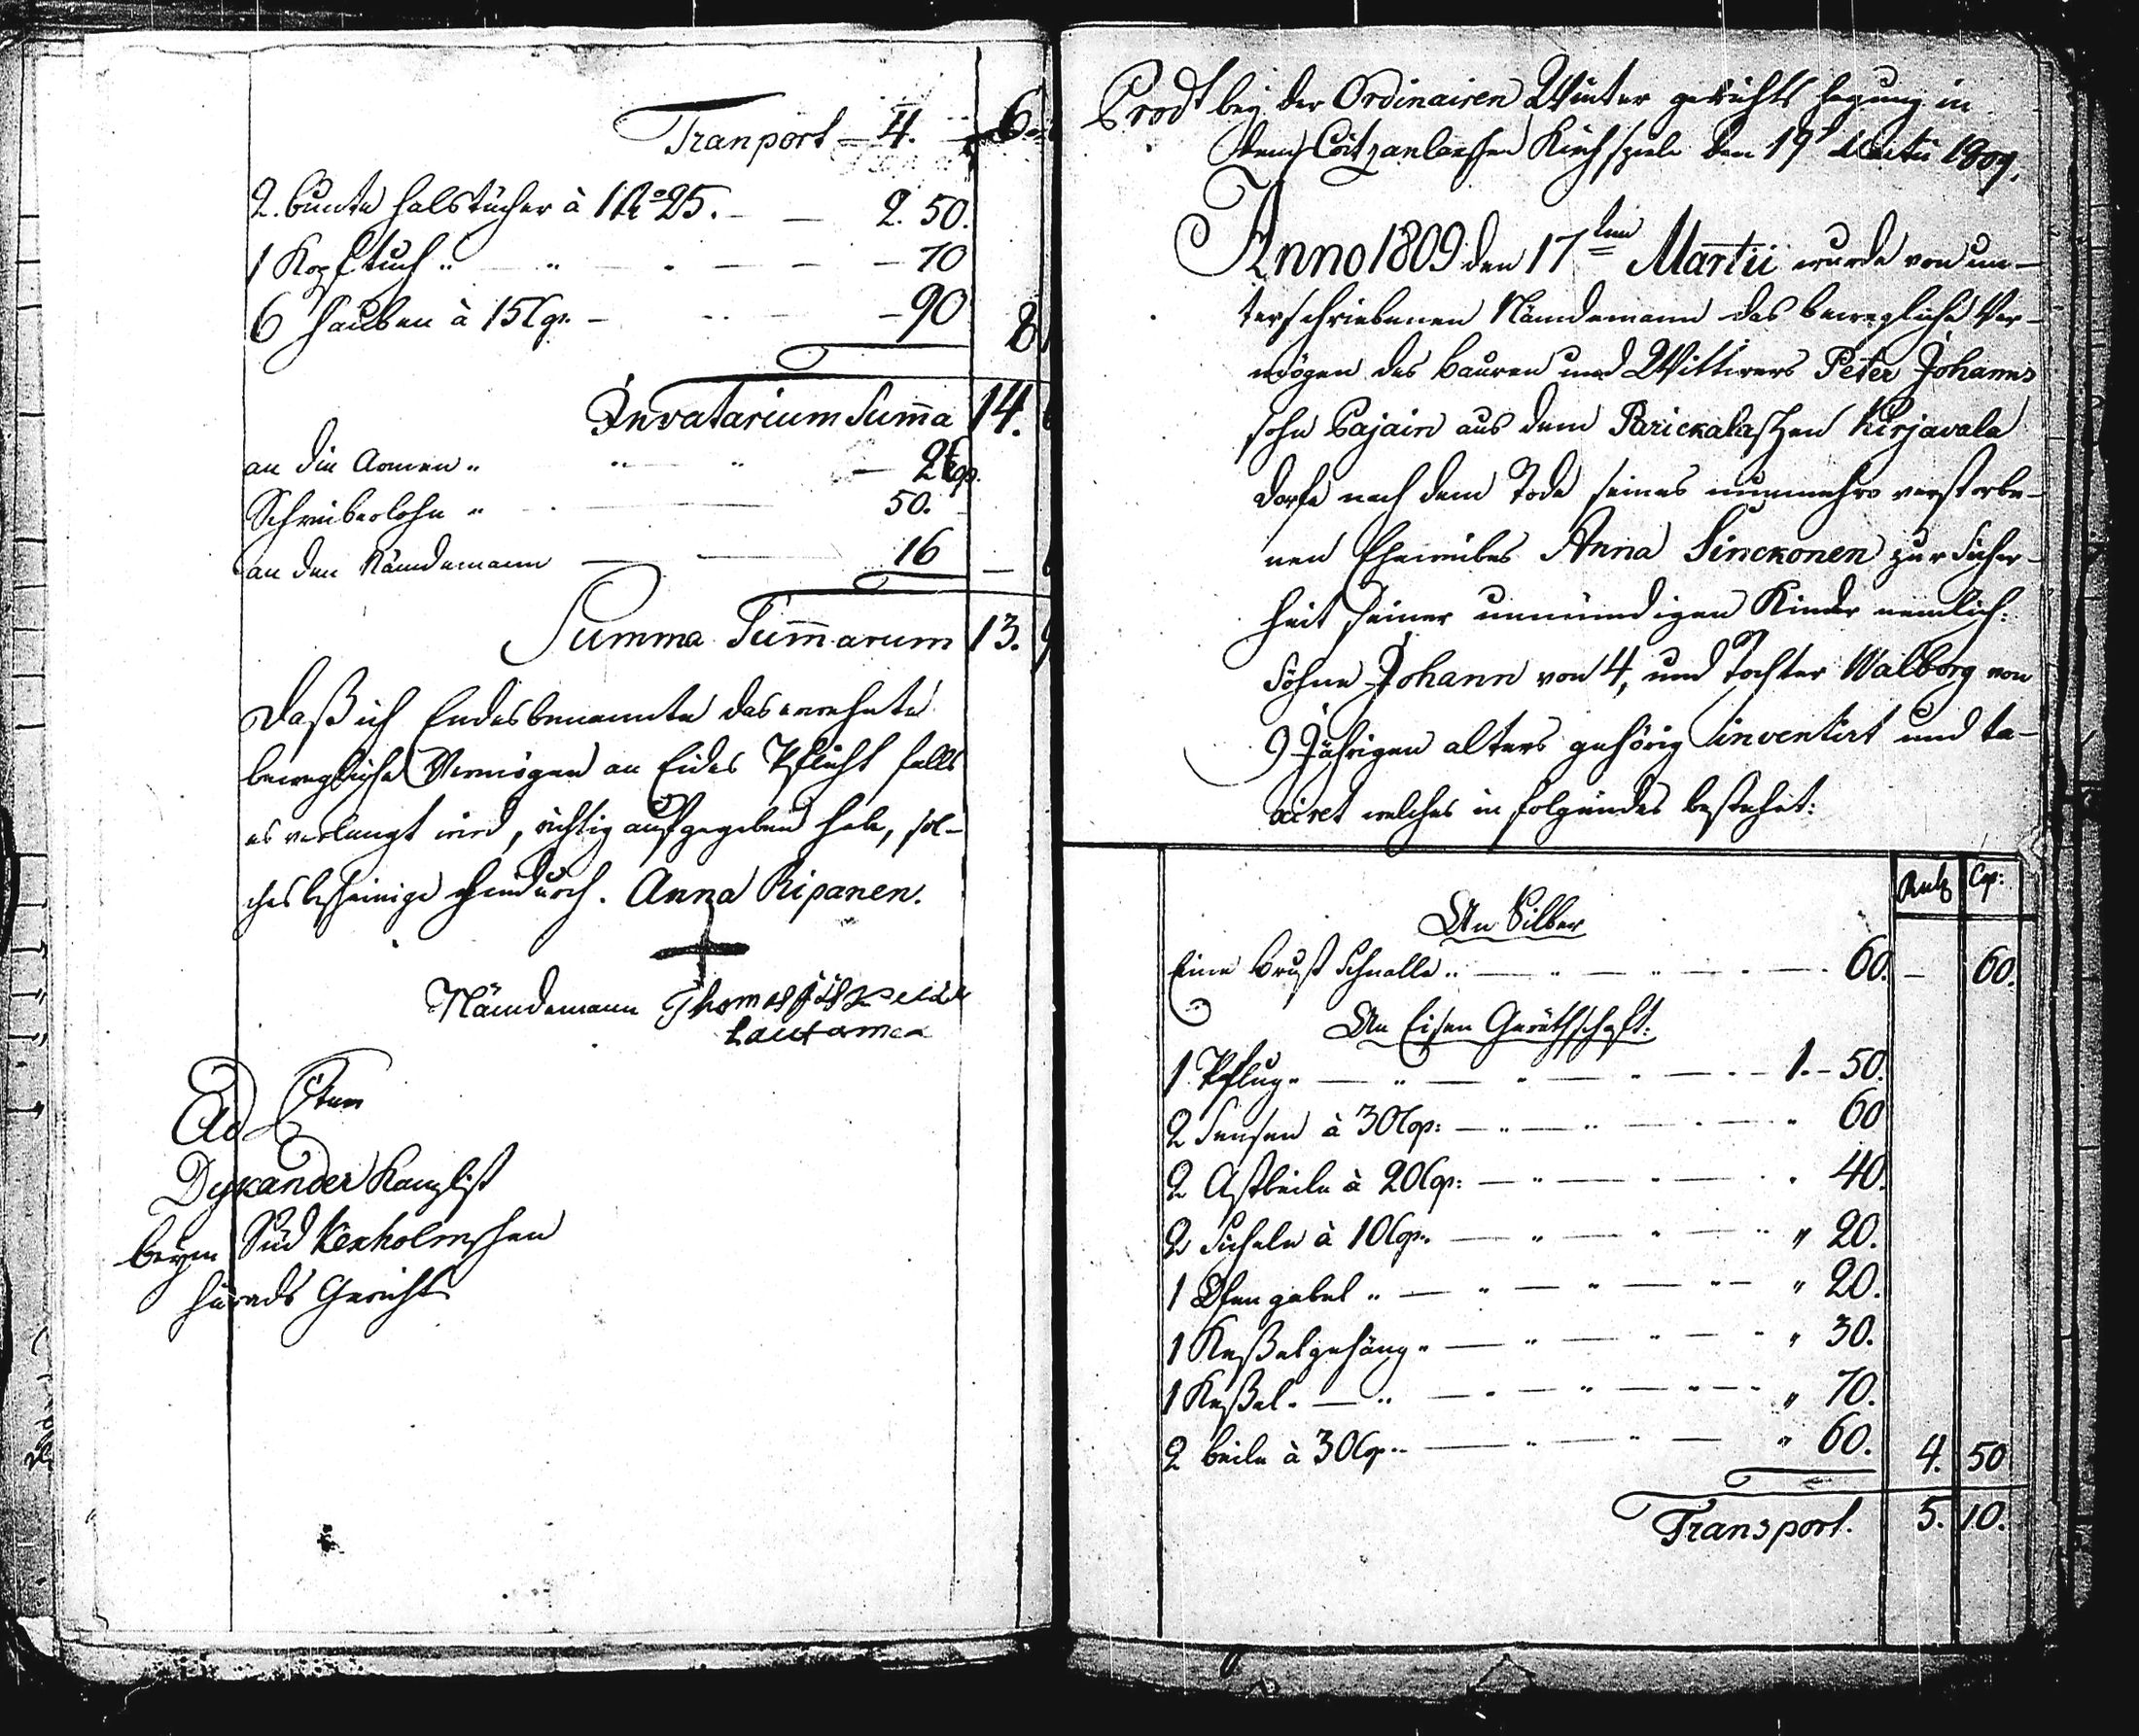 Tranport — 4. — 6
2. bunte Halstücher à 1 R° 25. — — 2. 50.
1 Kopftuch „ — „ — — — 70
6 Hauben à 15 Cp. — — — 90 8
Invatarium Sum̄a 14.
an die Armen „ „ „ — 2 Cp.
Schreiberlohn „ — 50.
an den Nämdemann — — 16 —
Summa Sum̄arum 13. 9
Daß ich Endesbenannte das erwehnte
bewegliche Vermögen an Eides Pflicht falls
es verlangt wird, richtig aufgegeben habe, sol-
ches bescheinige hiedurch. Anna Ripanen.
Nämdemann Thomas
Lautamies
Dykander Kanzlist
beym Süd Kexholmschen
Härads Gericht
Prodt bey der Ordinairen Winter gerichts hegung in
dem Kirchspiele den 19t Martii 1809.
Anno 1809 den 17ten Martii wurde von un-
terschriebenen Nämdemann das bewegliche Ver-
mögen des bauren und Wittwers Peter Johanns
sohn Pajain aus dem Parickalaschen Kirjavala
dorfe nach dem Tode seines nunmehro verstorbe-
nen Eheweibes Anna Sinckonen zur Sicher-
heit seiner unmündigen Kinder nemlich:
Söhne Johann von 4, und Tochter Walborg von
9 Jährigen alters gehörig inventirt und ta-
xiret welches in folgendes bestehet:
Rub Cop:
An Silber
Eine Brust Schnalle „ — „ — „ — 60. — 60.
An Eisen Geräthschaft:
1 Pflug „ — „ — „ — „ — 1. — 50.
2 Sensen à 30 Cop: — „ — „ — „ 60
2 Astbeile à 20 Cop: — „ — „ — „ 40.
2 Sicheln à 10 Cop: — „ — „ — „ 20.
1 Ofen gabel „ — „ — „ — „ — „ 20.
1 Keßelgehäng „ — „ — „ — „ 30.
1 Keßel. — „ — „ — „ — „ 70.
2 beile à 30 Cop „ — „ — „ — „ 60. 4. 50
Transport. 5. 10.